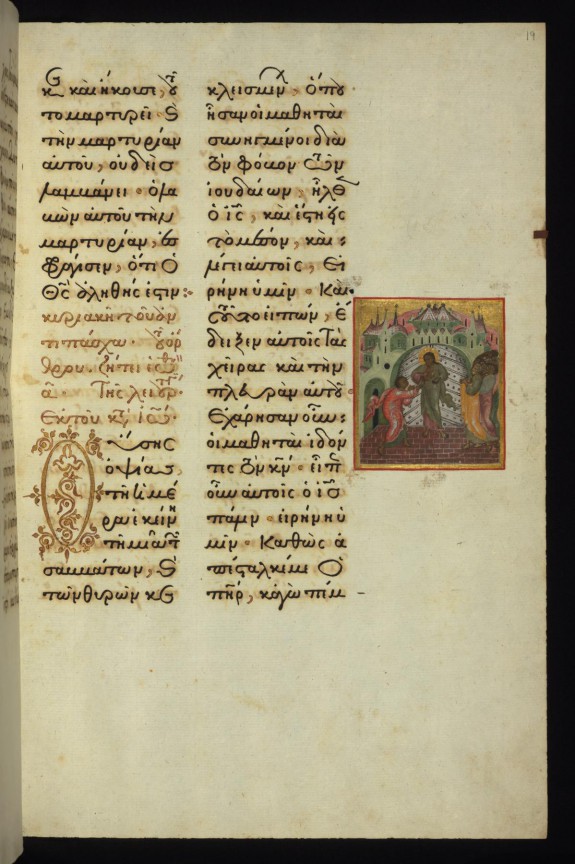 19
κ(αὶ) ἤκουσε, τοῦ
το μαρτυρεῖ· κ(αὶ)
τὴν μαρτυρίαν
αὐτοῦ, οὐδεὶς
λαμβάνει· ὁ λα
βὼν αὐτοῦ τὴν
μαρτυρίαν, ἐσ
φράγισεν, ὅτι ὁ
Θ(εὸ)ς ἀληθής ἐστιν:
κυριακῆ τοῦ ἀν
τιπάσχα·
Ἐκ τοῦ κ(α)τ(ὰ) Ἰω(άννην)·
Οὔσης
ὀψίας,
τῆ ἡμέ
ρα ἐκείνη
τῆ μιᾶ τῶν
σαββάτων, κ(αὶ)
τῶν θυρῶν κε
κλεισμ(έ)ν(ων), ὅπου
ἦσαν οἱ μαθηταὶ
συνηγμένοι διὰ
τὸν φόβον τῶν
ἰουδαίων, ἦλθε(ν)
ὁ ἰ(ησοῦ)ς, καὶ ἔστη εἰς
τὸ μέσον, καὶ
λέγει αὐτοῖς, Εἰ
ρήνη ὑμῖν· Καὶ
τοῦτο εἰπὼν, ἔ
δειξεν αὐτοῖς τὰς
χεῖρας καὶ τὴν
πλευρὰν αὐτοῦ·
Ἐχάρησαν οὖν
οἱ μαθηταὶ ἰδόν
τες τὸν κ(ύριο)ν· εἶπ(εν)
οὖν αὐτοῖς ὁ ἰ(ησοῦ)ς
πάλιν· εἰρήνη ὑ
μῖν· Καθὼς ἀ
πέσταλκέ με ὁ
π(ατ)ήρ, κἀγὼ πέμ